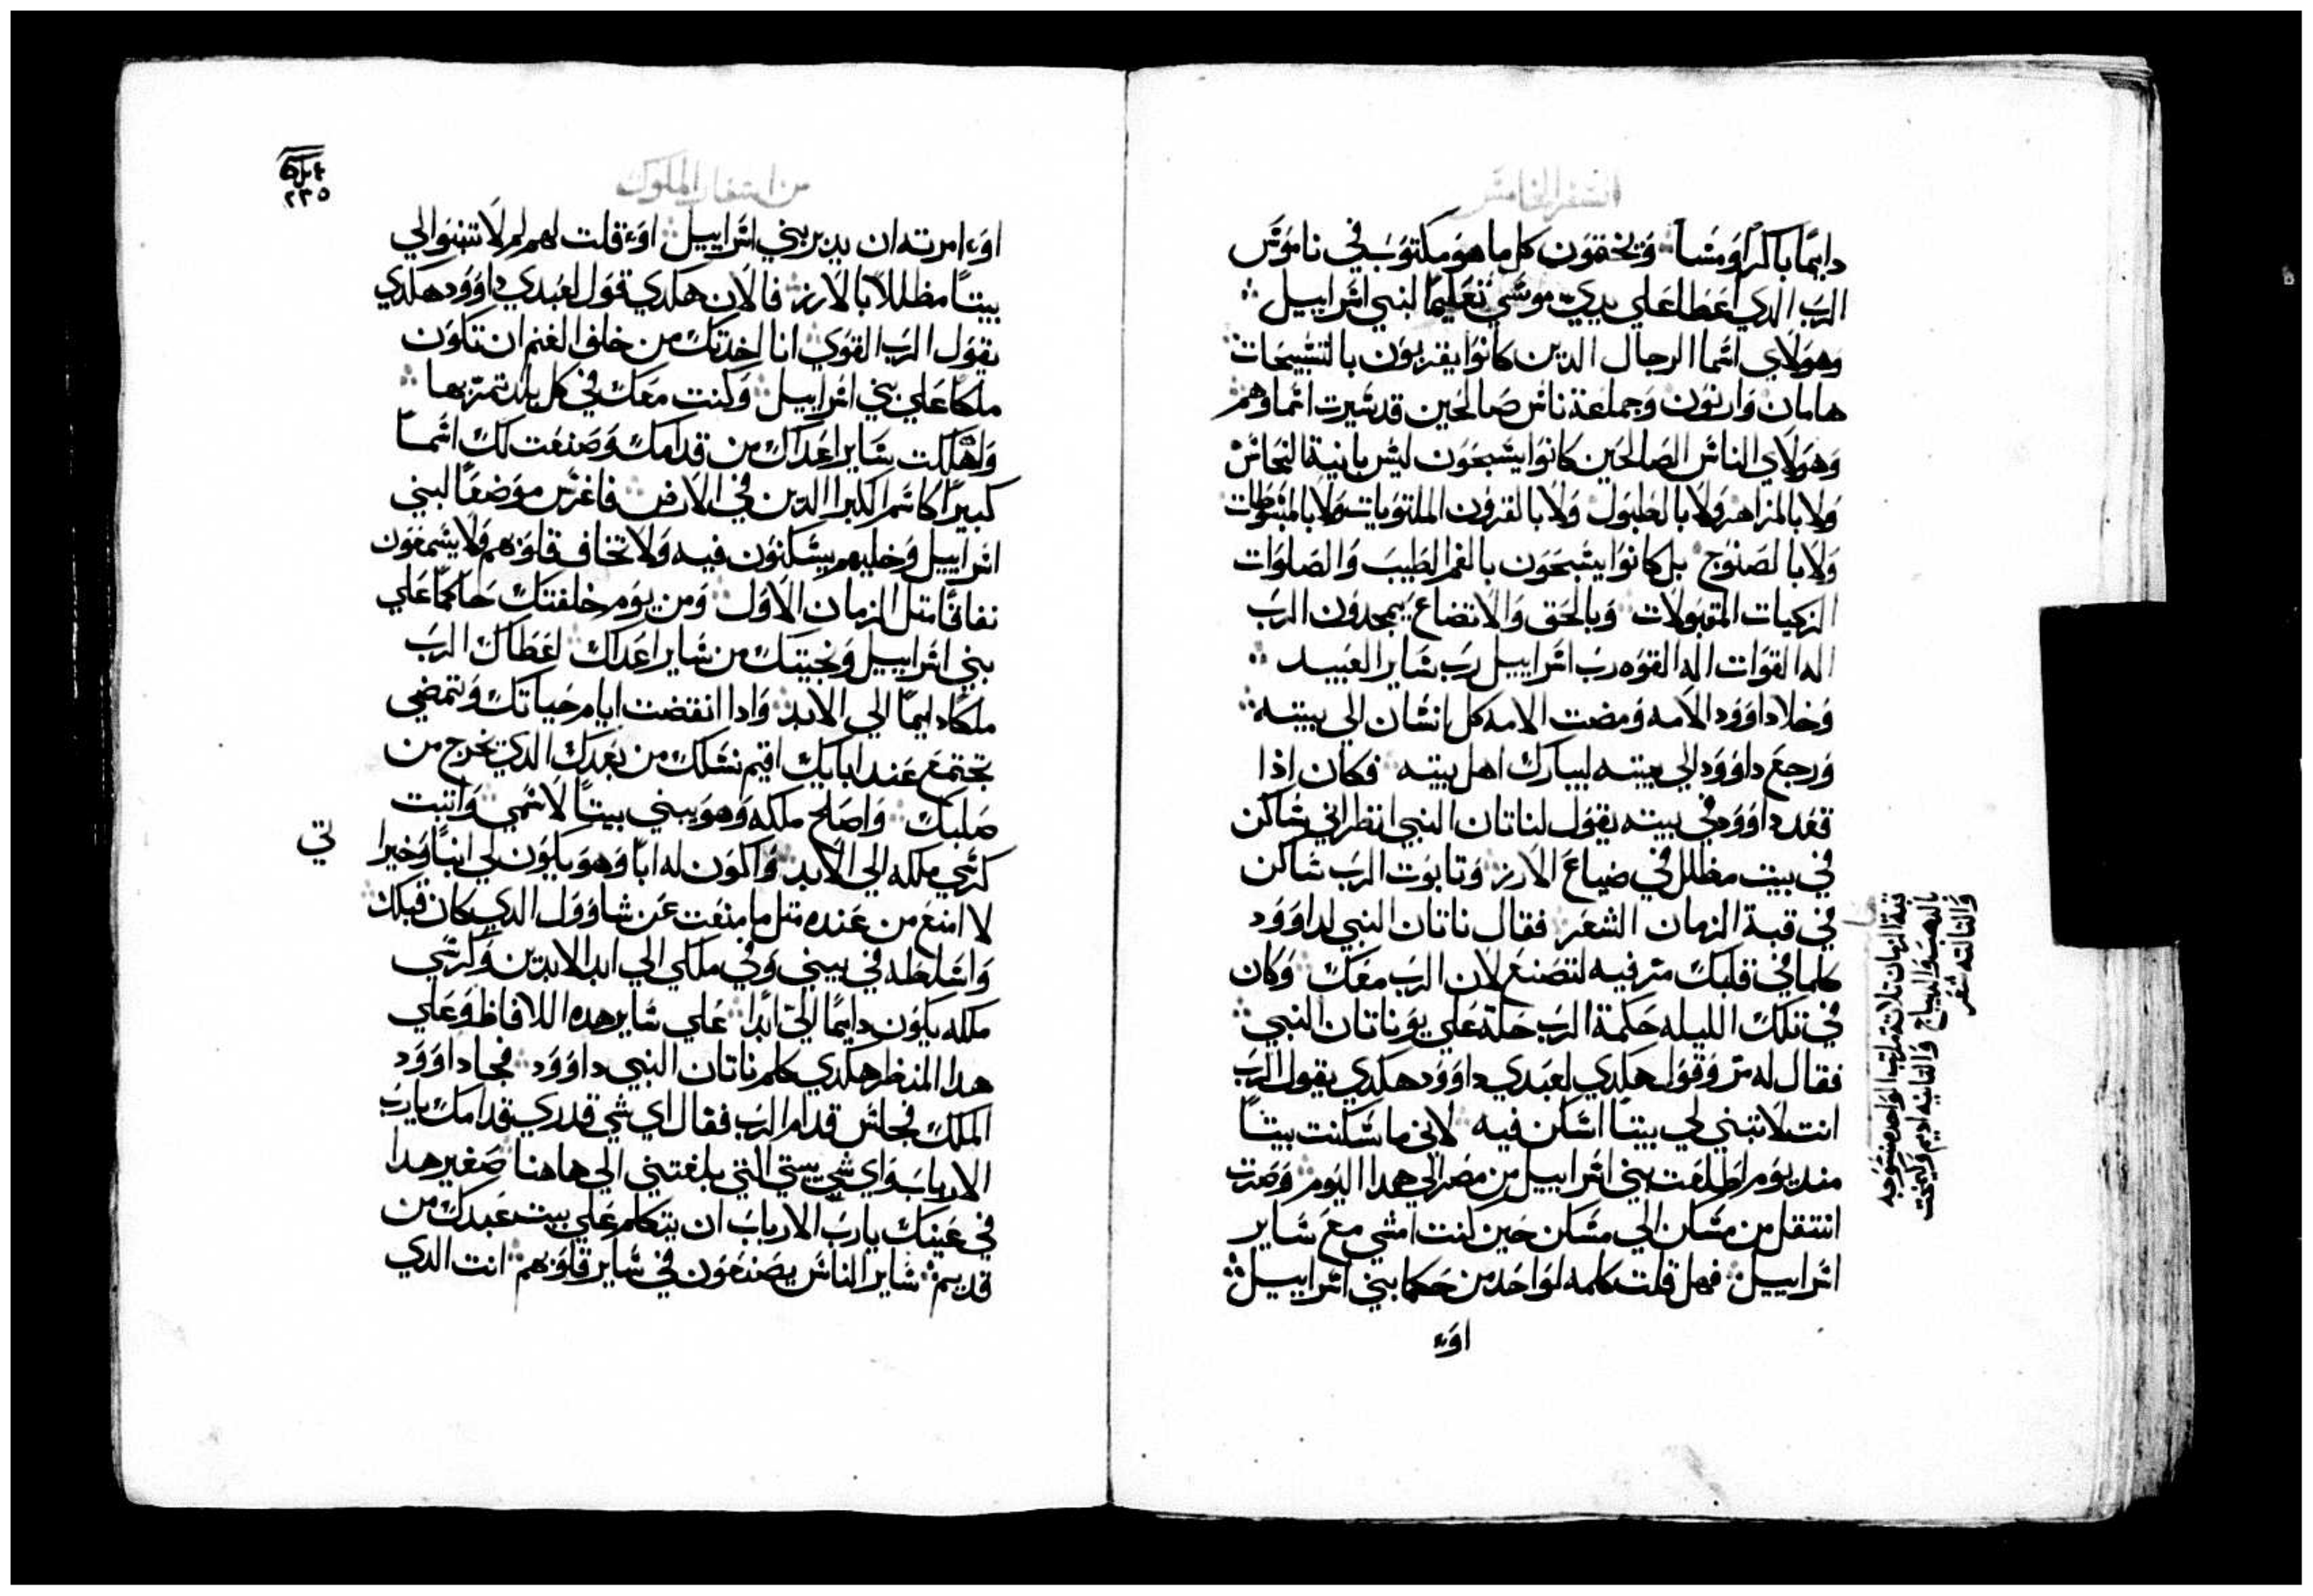 السفر الخامس
دايمًا باكرًا ومسآ وَيحققوَن كل ماهوَ مكتوَبَ في ناموَسَ
الربَ الدي اعَطا عَلي يدي موسَي تعَليمًا لبني اسَراييل
وَهوَلاي اسَما الرجال الدين كانوَا يقربوَن بالتسَبيحَات
هامان وَارتوَن وَجماعَة ناسَ صَالحَين قدسَيرت اسَماوَهم
وَهوَلاي الناسَ الصَالحَين كانوَا يسَبحَوَن ليسَ بانية النحَاسَ
وَلا بالمزاهر وَلا بالطبوَل وَلا بالقروَن الملتوَيات وَلا بالمبسَوطات
وَلا بالصَنوَج بل كانوَا يسَبحَوَن بالفم الطيبَ وَالصَلوَات
الزكيات المقبوَلات وَبالحَق وَالاتضاعَ يمجدوَن الربَ
اله القوَات اله القوَه ربَ اسَراييل ربَ سَاير العَبيد
وَخلا داوَوَد الامه وَمضت الامه كل انسَان الي بيته
وَرجعَ داوَوَد الي بيته ليبارك اهل بيته فكان اذا
قعَد داوَوَد في بيته يقوَل لناتان النبي انظر اني سَاكن
في بيت مظلل في ضياعَ الارز وَتابوَت الربَ سَاكن
في قبة الزمان الشعَر فقال ناتان النبي لداوَوَد
كلما في قلبك مر فيه لتصَنعَ لان الربَ معَك وَكان
في تلك الليله حَكمة الربَ حَلة عَلي يوَناتان النبي
فقال له مر وَقوَل هكدي لعَبدي داوَوَد هكدي يقوَل الربَ
انت لا تبني لي بيتًا اسَكن فيه لاني ما سَكنت بيتًا
مند يوَم اطلعَت بني اسَراييل من مصَر الي هدا اليوَم وَصَرت
انتقل من مسَكن الي مسَكن حَين كنت امشي معَ سَاير
اسَراييل فهل قلت كلمه لوَاحَد من حَكما بني اسَراييل
اوَء
قبة الزمان تلاتة مراتب الوَاحَده منسَوجه
وَالديباج وَالتانيه اديم وَكيمخت
وَالتالته شعَر
من اسفار الملوك
٢٣٥
اوَء امرته ان يدبر بني اسَراييل اوَء قلت لهم لم لا تبنوَا لي
بيتًا مظللًا بالارز فالان هكدي قوَل لعَبدي داوَوَد هكدي
يقوَل الربَ القوَي انا اخدتك من خلف الغنم ان تكوَن
ملكًا عَلي بني اسَراييل وَكنت معَك في كل بلد تمر بها
وَاهلكت سَاير اعَداك من قدامك وَصَنعَت لك اسَمًا
كبيرًا كاسَم الكبرا الدين في الارض فاغرسَ موَضعًا لبني
اسَراييل وَخليهم يسَكنوَن فيه وَلا تخاف قلوَبهم وَلا يسَمعَوَن
نفاقًا متل الزمان الاوَل وَمن يوَم خلفتك حَاكمًا عَلي
بني اسَراييل وَنجيتك من سَاير اعَداك اعَطاك الربَ
ملكًا دايمًا الي الابد وَادا انقضت ايام حَياتك وَتمضي
تجتمعَ عَند ابايك اقيم نسَلك من بعَدك الدي يخرج من
صَلبك وَاصَلح ملكه وَهوَ يبني بيتًا لاسَمي وَاتبت
كرسَي ملكه الي الابد وَاكوَن له ابًا وَهوَ يكوَن لي ابنًا وَخيرا
تي
لا امنعَ من عَنده متل ما منعَت عَن شاوَوَل الدي كان قبلك
وَاسَلطه في بيتي وَفي ملكي الي ابد الابدين وَكرسَي
ملكه يكوَن دايمًا الي ابدًا عَلي سَاير هده اللالفاظ وَعَلي
هدا المنظر هكدي كلم ناتان النبي داوَوَد فجا داوَوَد
الملك فجلسَ قدام الربَ فقال اي شي قدري قدامك ياربَ
الاربابَ وَاي شي بيتي التي بلغتني الي هاهنا صَغير هدا
في عَينك ياربَ الاربابَ ان يتكلم عَلي بيت عَبدك من
قديم سَاير الناسَ يصَنعَوَن في سَاير قلوَبهم انت الدي